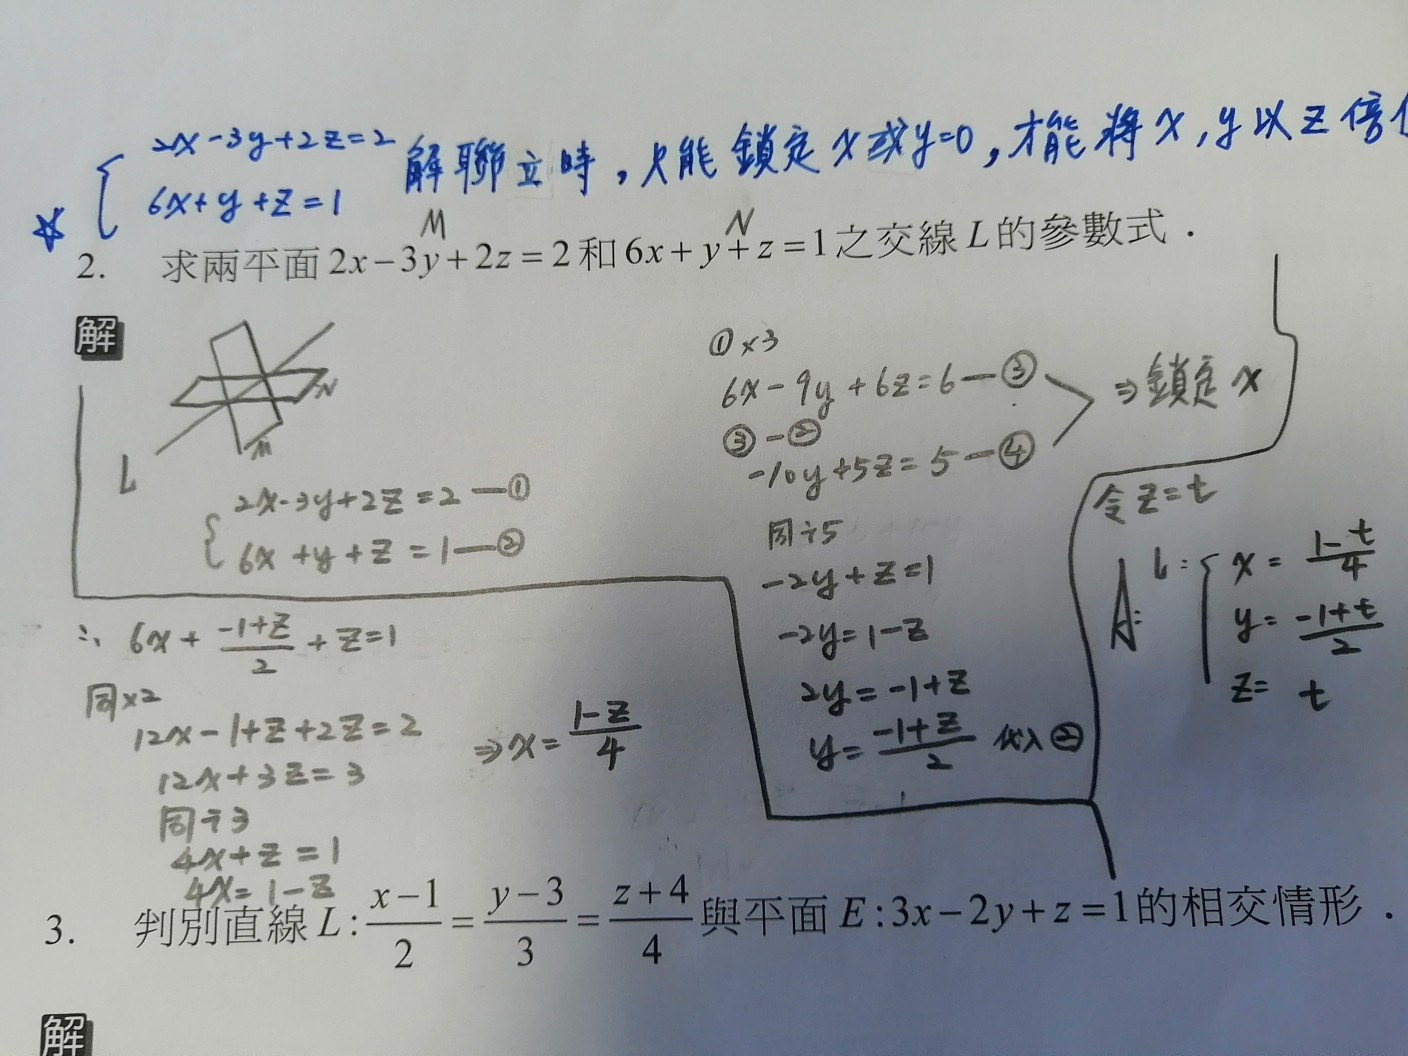 2x-3y+2z=2
6x+y+z=1
解聯立時,只能鎖定x或y=0,才能將x,y以z倍
☆
M N
2. 求兩平面2x-3y+2z=2和6x+y+z=1之交線L的參數式.
解
N
M
L
2x-3y+2z=2—①
6x+y+z=1—②
①×3
6x-9y+6z=6—③
③-②
-10y+5z=5—④
⇒鎖定x
同÷5
-2y+z=1
-2y=1-z
2y=-1+z
y=\frac{-1+z}{2} 代入②
∴ 6x+\frac{-1+z}{2}+z=1
同×2
12x-1+z+2z=2
12x+3z=3
同÷3
4x+z=1
4x=1-z
⇒x=\frac{1-z}{4}
令z=t
A: L: x=\frac{1-t}{4}
y=\frac{-1+t}{2}
z= t
3. 判別直線L:\frac{x-1}{2}=\frac{y-3}{3}=\frac{z+4}{4}與平面E:3x-2y+z=1的相交情形.
解